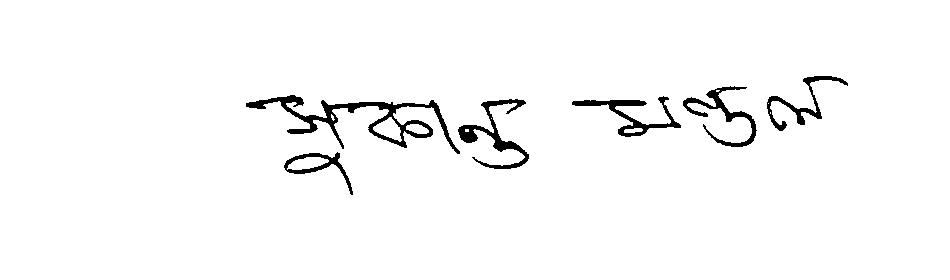 সুকান্ত মণ্ডল